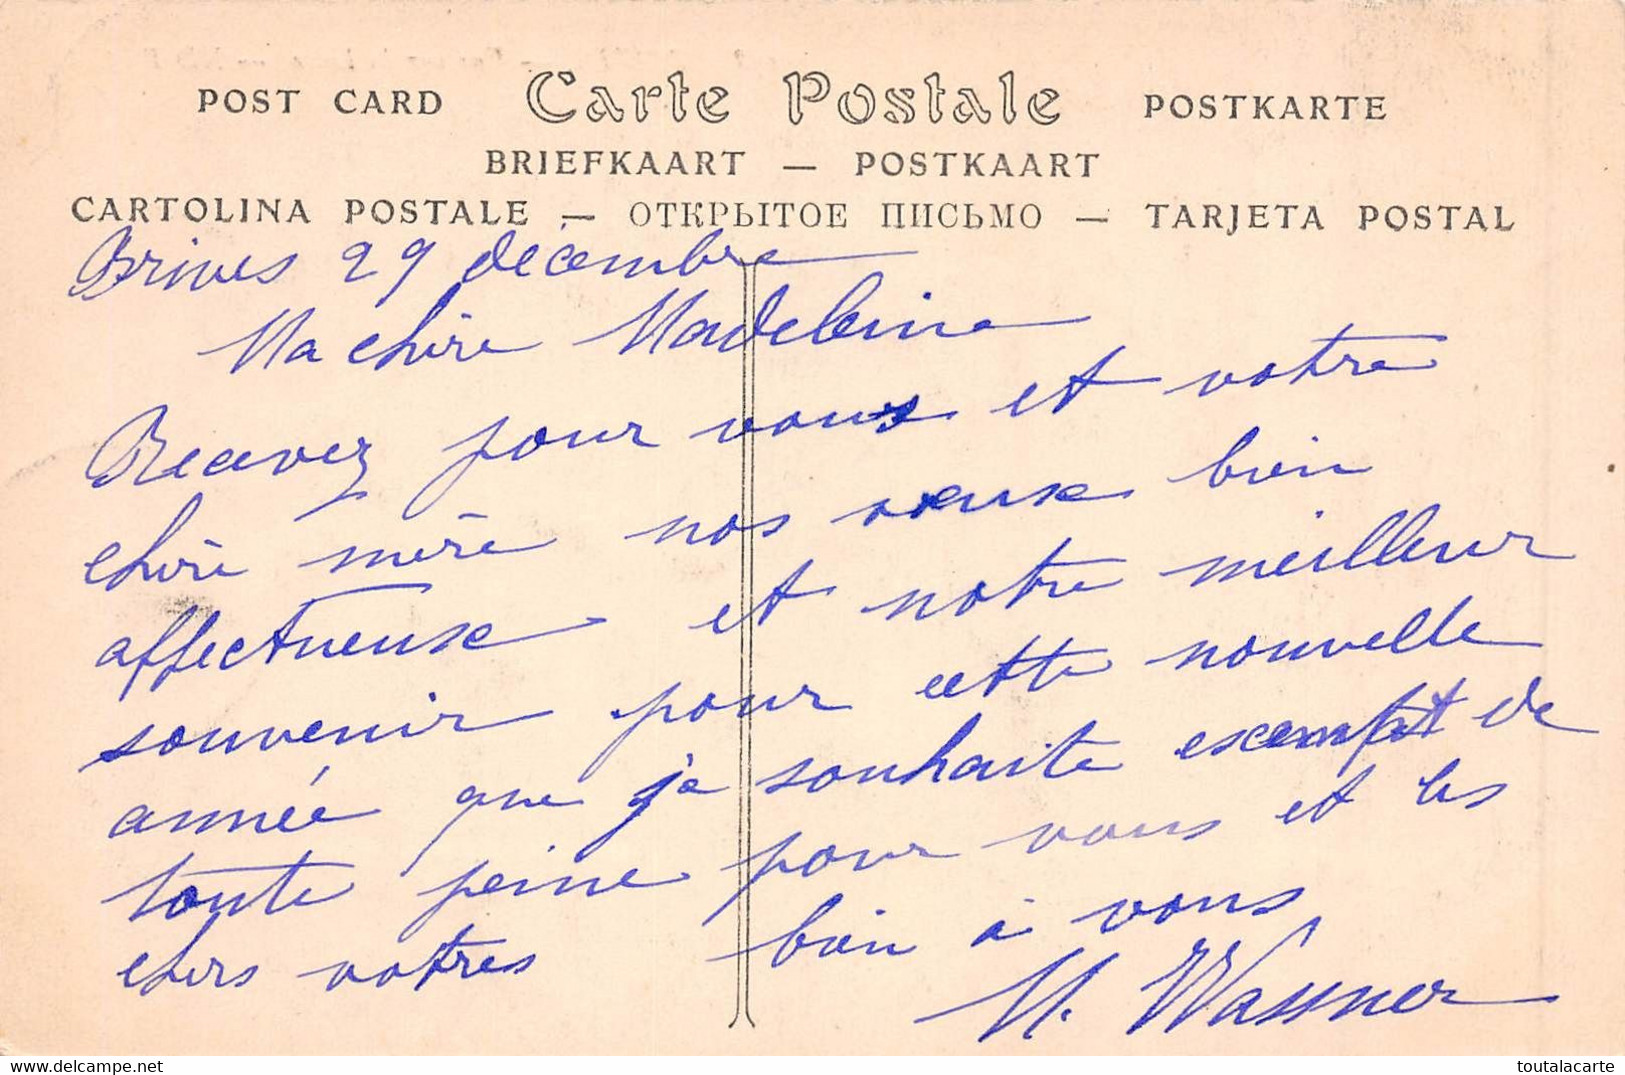 POST CARD Carte Postale POSTKARTE
BRIEFKAART — POSTKAART
CARTOLINA POSTALE — ОТКРЫТОЕ ПИСЬМО — TARJETA POSTAL
Brives 29 décembre
Ma chère Madeleine
Recevez pour vous et votre
chère mère nos vœux bien
affectueux et notre meilleur
souvenir pour cette nouvelle
année que je souhaite exempt de
toute peine pour vous et les
chers votres bien à vous
M. Wassner
delcampe.net
toutalacarte